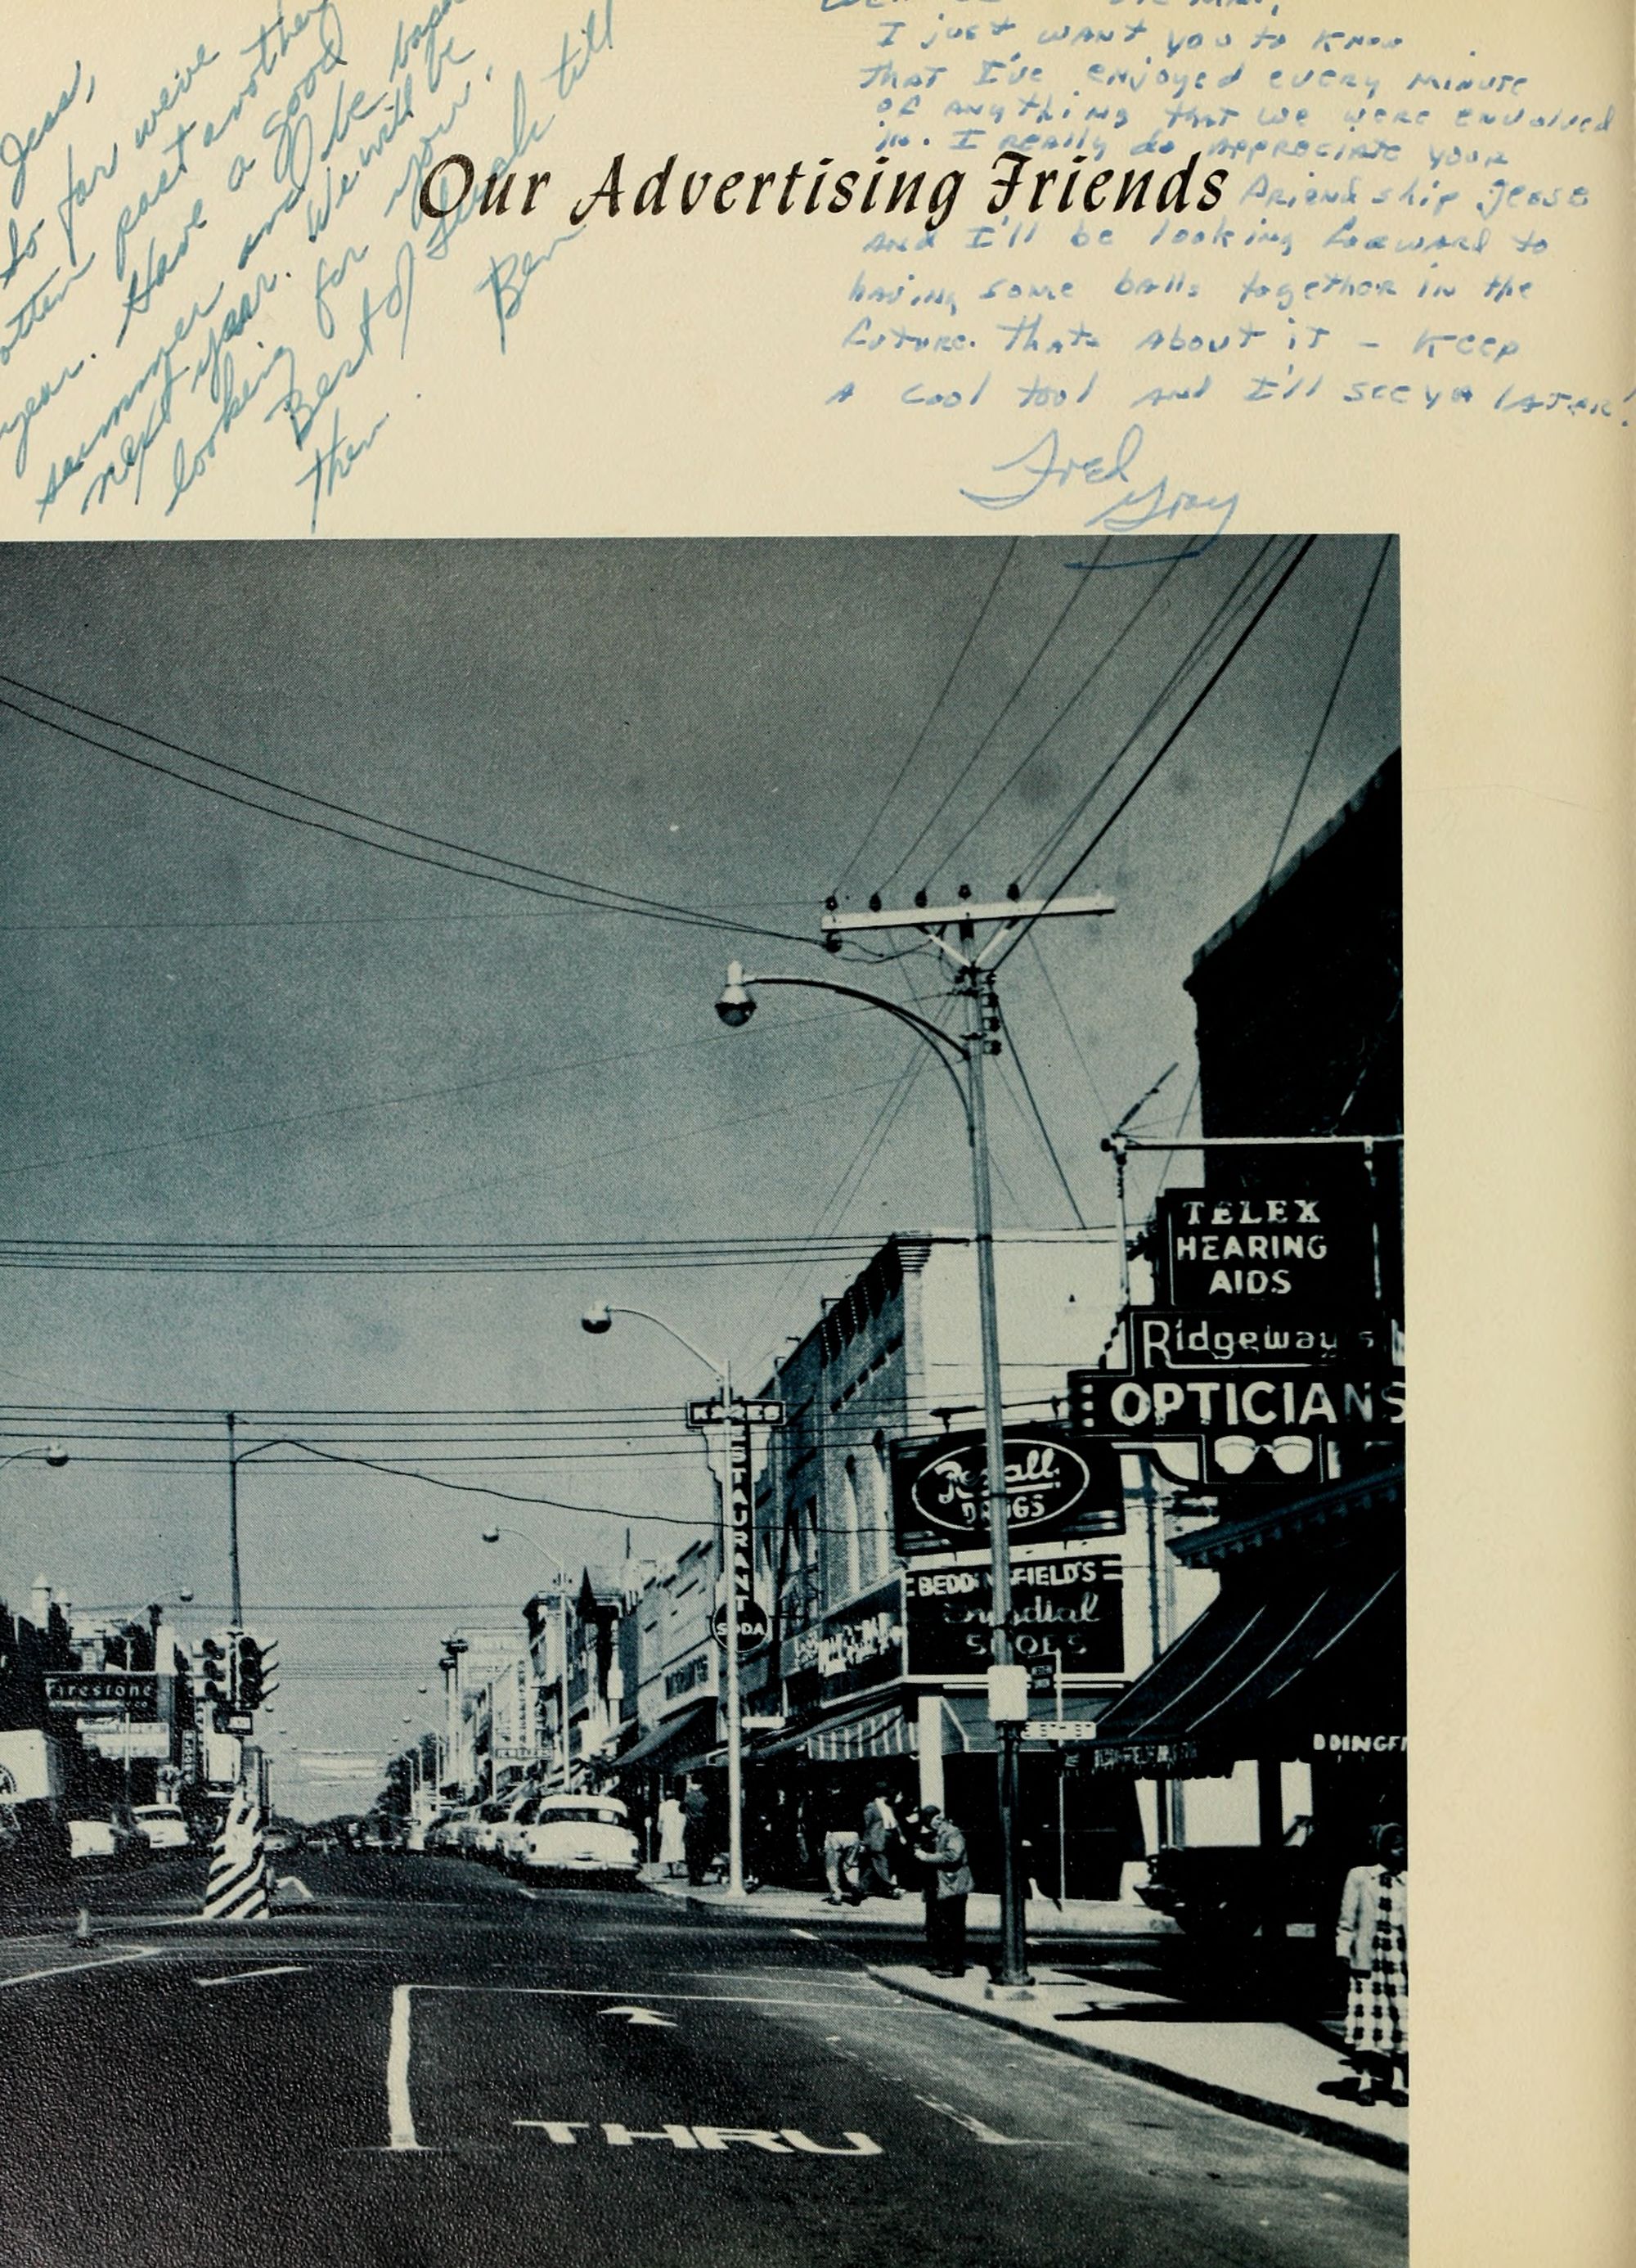 Jess,
So far we've
gotten past another
year. Have a good
summer and be back
next year. We will be
looking for you.
Best of luck till
then.
Ben
I just want you to know
that I've enjoyed every minute
of anything that we were envolved
in. I really do appreciate your
friendship Jesse
and I'll be looking forward to
having some balls together in the
future. Thats about it - Keep
a cool tool and I'll see ya later!
Fred
Gray
Our Advertising Friends
TELEX
HEARING
AIDS
Ridgeway's
OPTICIANS
Rexall
DRUGS
BEDDINGFIELD'S
SHOES
RESTAURANT
SODA
Firestone
DDINGF
THRU